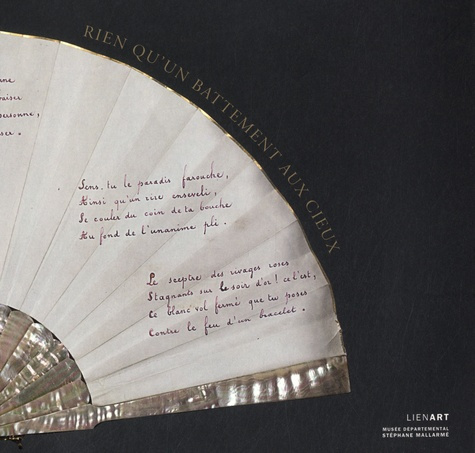 RIEN QU'UN BATTEMENT AUX CIEUX
Sens-tu le paradis farouche,
Ainsi qu'un rire enseveli,
Se couler du coin de ta bouche
Au fond de l'unanime pli.
Le sceptre des rivages roses
Stagnants sur le soir d'or ! ce l'est,
Ce blanc vol fermé que tu poses
Contre le feu d'un bracelet.
LIENART
MUSÉE DÉPARTEMENTAL
STÉPHANE MALLARMÉ